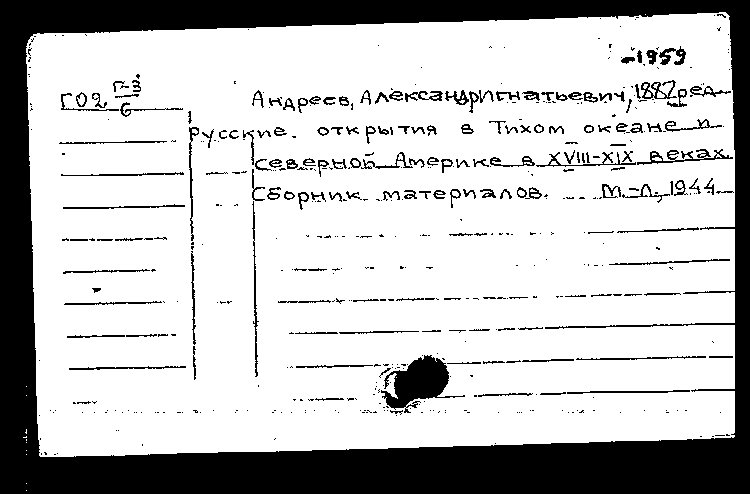 -1959
ГО2 Г-3/6 Андреев, Александр Игнатьевич, 1882 ред
Русские. открытия в Тихом океане и
северной Америке в XVIII-XIX веках
Сборник материалов. М.-Л., 1944